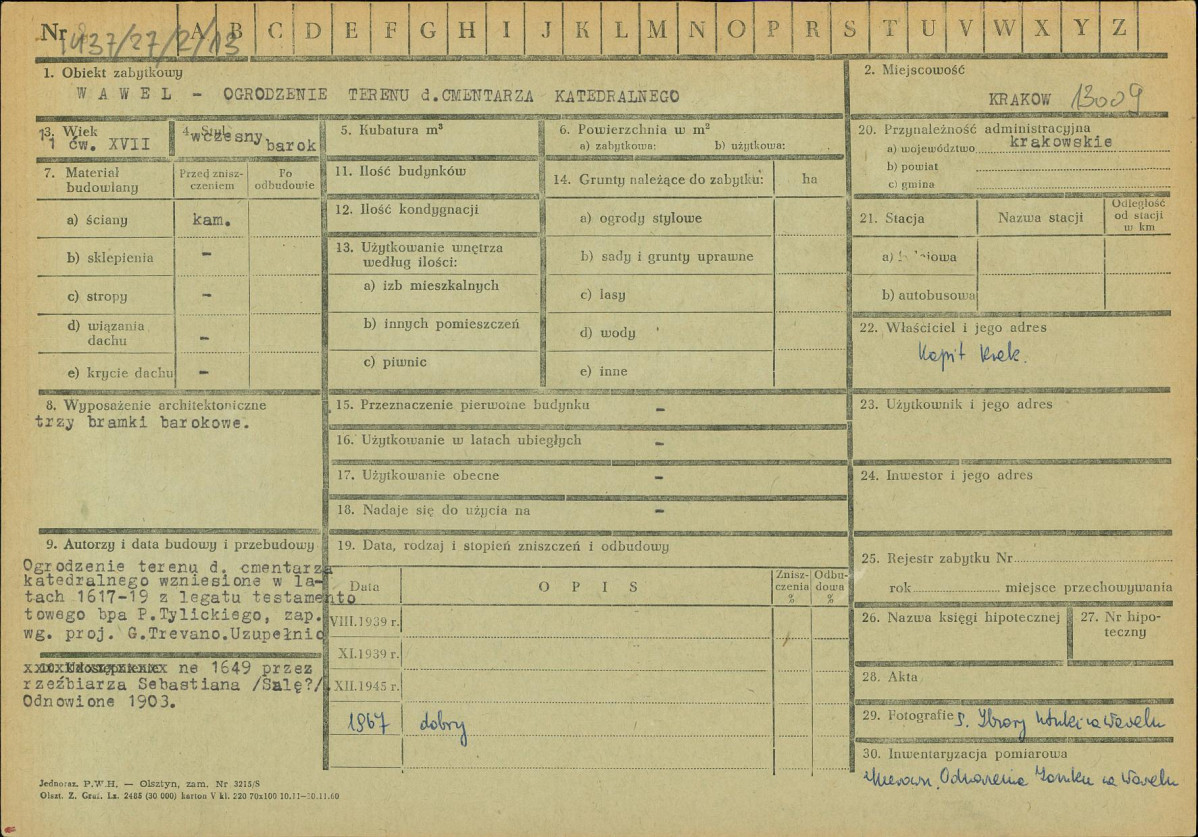 Nr 1437/27/2/13 A B C D E F G H I J K L M N O P R S T U V W X Y Z
1. Obiekt zabytkowy
WAWEL - OGRODZENIE TERENU d.CMENTARZA KATEDRALNEGO
2. Miejscowość
KRAKOW 13009
3. Wiek
1 ćw. XVII
4. Styl
wczesny barok
5. Kubatura m³
6. Powierzchnia w m²
a) zabytkowa: b) użytkowa:
20. Przynależność administracyjna
a) województwo krakowskie
b) powiat
c) gmina
7. Materiał budowlany
Przed zniszczeniem
Po odbudowie
a) ściany kam.
b) sklepienia -
c) stropy -
d) wiązania dachu -
e) krycie dachu -
11. Ilość budynków
12. Ilość kondygnacji
13. Użytkowanie wnętrza
według ilości:
a) izb mieszkalnych
b) innych pomieszczeń
c) piwnic
14. Grunty należące do zabytku: ha
a) ogrody stylowe
b) sady i grunty uprawne
c) lasy
d) wody
e) inne
21. Stacja
Nazwa stacji
Odległość od stacji w km
a)
b) autobusowa
22. Właściciel i jego adres
Kapit. Krak.
8. Wyposażenie architektoniczne
trzy bramki barokowe.
15. Przeznaczenie pierwotne budynku -
16. Użytkowanie w latach ubiegłych -
17. Użytkowanie obecne -
18. Nadaje się do użycia na -
23. Użytkownik i jego adres
24. Inwestor i jego adres
9. Autorzy i data budowy i przebudowy
Ogrodzenie terenu d. cmentarza
katedralnego wzniesione w la-
tach 1617-19 z legatu testamento
towego bpa P.Tylickiego, zap.
wg. proj. G.Trevano.Uzupełnio
10. Udostępnienie
ne 1649 przez
rzeźbiarza Sebastiana /Salę?/
Odnowione 1903.
19. Data, rodzaj i stopień zniszczeń i odbudowy
Data
OPIS
Zniszczenia %
Odbudowa %
VIII.1939 r.
XI.1939 r.
XII.1945 r.
1967 dobry
25. Rejestr zabytku Nr
rok miejsce przechowywania
26. Nazwa księgi hipotecznej
27. Nr hipoteczny
28. Akta
29. Fotografie Zbiory Sztuki na Wawelu
30. Inwentaryzacja pomiarowa
Kierown. Odnowienia Zamku na Wawelu
Jednoraz. P.W.H. — Olsztyn, zam. Nr 3215/S
Olszt. Z. Graf. Lz. 2485 (30 000) karton V kl. 220 70x100 10.11—30.11.60